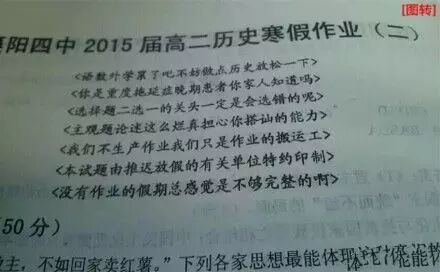 [图转]
阳四中 2015 届高二历史寒假作业（二）
<语数外学累了吧不妨做点历史放松一下>
<你是重度拖延症晚期患者你家人知道吗>
<选择题二选一的关头一定是会选错的呢>
<主观题论述这么烂真担心你搭讪的能力>
<我们不生产作业我们只是作业的搬运工>
<本试题由推迟放假的有关单位特约印制>
<没有作业的假期总感觉是不够完整的啊>
50 分）
主，不如回家卖红薯。”下列各家思想最能体现